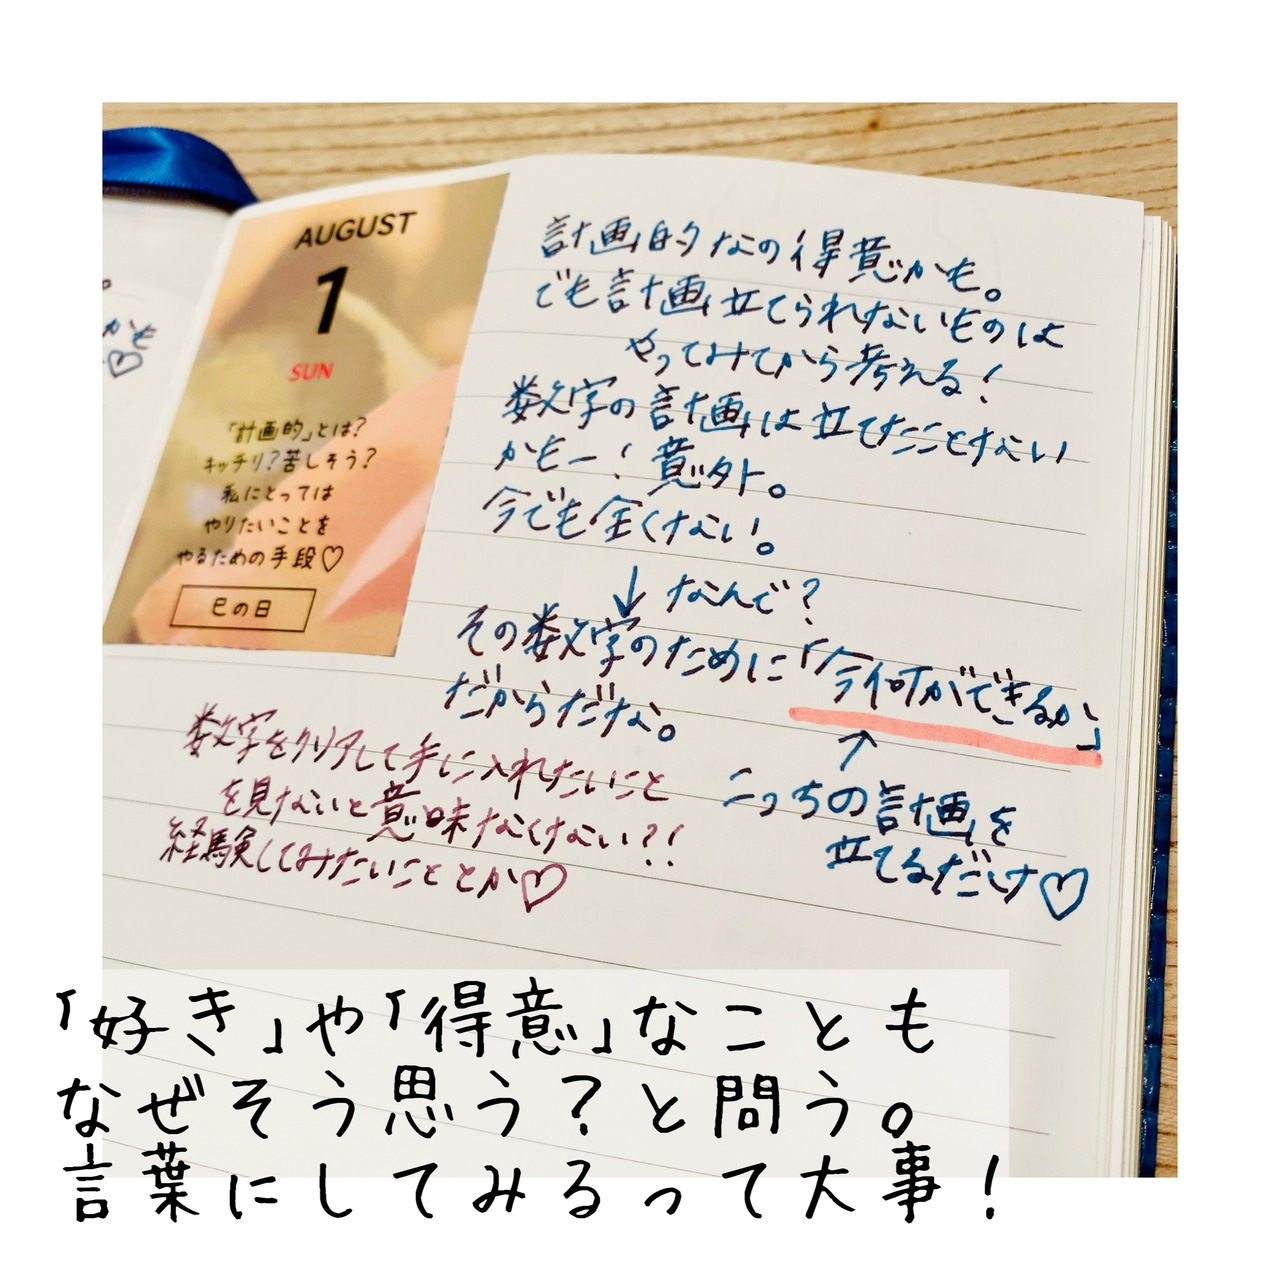 AUGUST
1
SUN
「計画的」とは?
キッチリ?苦しそう?
私にとっては
やりたいことを
やるための手段♡
巳の日
かも
♡
計画的なの得意かも。
でも計画立てられないものは
やってみてから考える!
数字の計画は立てたことない
かもー!意外。
今でも全くない。
↓なんで?
その数字のために「今何ができるか」
だからだな。
↑
こっちの計画を
立てるだけ♡
数字をクリアして手に入れたいこと
を見ないと意味なくない?!
経験してみたいこととか♡
「好き」や「得意」なことも
なぜそう思う?と問う。
言葉にしてみるって大事!